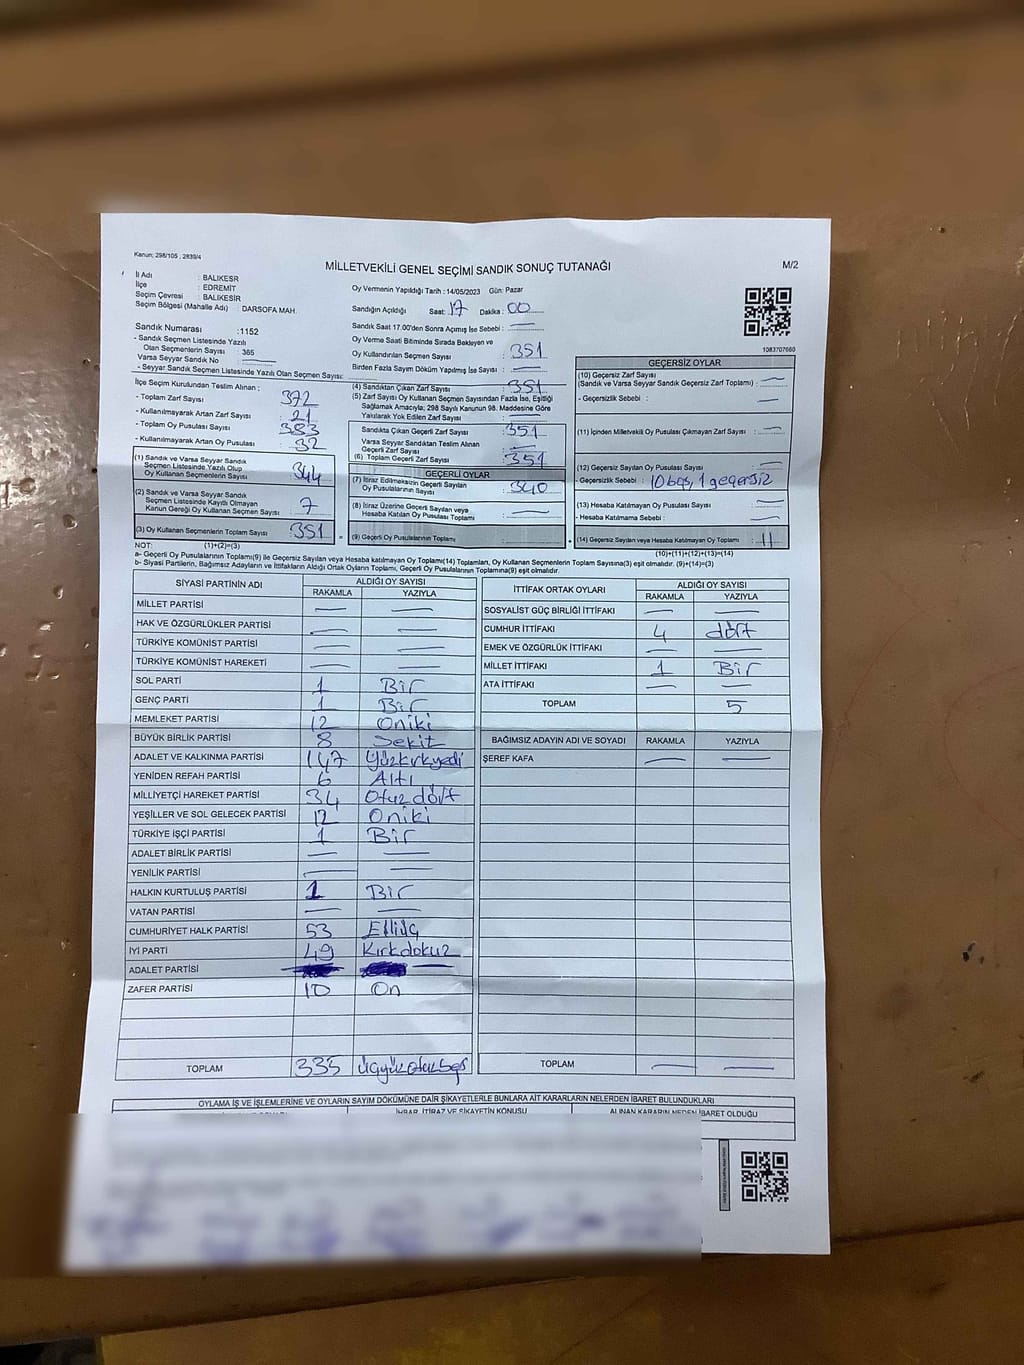 Kanun: 298/105 , 2839/4
MİLLETVEKİLİ GENEL SEÇİMİ SANDIK SONUÇ TUTANAĞI
M/2
İl Adı : BALIKESR
İlçe : EDREMİT
Seçim Çevresi : BALIKESİR
Seçim Bölgesi (Mahalle Adı) : DARSOFA MAH.
Sandık Numarası :1152
- Sandık Seçmen Listesinde Yazılı
Olan Seçmenlerin Sayısı : 365
Varsa Seyyar Sandık No
- Seyyar Sandık Seçmen Listesinde Yazılı Olan Seçmen Sayısı:
İlçe Seçim Kurulundan Teslim Alınan :
- Toplam Zarf Sayısı : 372
- Kullanılmayarak Artan Zarf Sayısı : 21
- Toplam Oy Pusulası : 383
- Kullanılmayarak Artan Oy Pusulası : 32
(1) Sandık ve Varsa Seyyar Sandık
Seçmen Listesinde Yazılı Olup
Oy Kullanan Seçmenlerin Sayısı : 344
(2) Sandık ve Varsa Seyyar Sandık
Seçmen Listesinde Kayıtlı Olmayan
Kanun Gereği Oy Kullanan Seçmen Sayısı : 7
(3) Oy Kullanan Seçmenlerin Toplam Sayısı : 351
Oy Vermenin Yapıldığı Tarih : 14/05/2023 Gün: Pazar
Sandığın Açıldığı Saat: 17 Dakika : 00
Sandık Saat 17.00'den Sonra Açılmış İse Sebebi : —
Oy Verme Saati Bitiminde Sırada Bekleyen ve
Oy Kullandırılan Seçmen Sayısı : 351
Birden Fazla Sayım Döküm Yapılmış İse Sayısı : —
(4) Sandıktan Çıkan Zarf Sayısı : 351
(5) Zarf Sayısı Oy Kullanan Seçmen Sayısından Fazla İse, Eşitliği
Sağlamak Amacıyla; 298 Sayılı Kanunun 98. Maddesine Göre
Yakılarak Yok Edilen Zarf Sayısı : —
Sandıkta Çıkan Geçerli Zarf Sayısı : 351
Varsa Seyyar Sandıktan Teslim Alınan
Geçerli Zarf Sayısı : —
(6) Toplam Geçerli Zarf Sayısı : 351
GEÇERLİ OYLAR
(7) İtiraz Edilmeksizin Geçerli Sayılan
Oy Pusulalarının Sayısı : 340
(8) İtiraz Üzerine Geçerli Sayılan veya
Hesaba Katılan Oy Pusulası Toplamı : —
(9) Geçerli Oy Pusulalarının Toplamı :
1083707660
GEÇERSİZ OYLAR
(10) Geçersiz Zarf Sayısı
(Sandık ve Varsa Seyyar Sandık Geçersiz Zarf Toplamı) : —
- Geçersizlik Sebebi : —
(11) İçinden Milletvekili Oy Pusulası Çıkmayan Zarf Sayısı : —
(12) Geçersiz Sayılan Oy Pusulası Sayısı : —
- Geçersizlik Sebebi : 10 boş, 1 geçersiz
(13) Hesaba Katılmayan Oy Pusulası Sayısı : —
- Hesaba Katılmama Sebebi : —
(14) Geçersiz Sayılan veya Hesaba Katılmayan Oy Toplamı : 11
NOT: (1)+(2)=(3)
(10)+(11)+(12)+(13)=(14)
a- Geçerli Oy Pusulalarının Toplamı(9) ile Geçersiz Sayılan veya Hesaba Katılmayan Oy Toplamı(14) Toplamları, Oy Kullanan Seçmenlerin Toplam Sayısına(3) eşit olmalıdır. (9)+(14)=(3)
b- Siyasi Partilerin, Bağımsız Adayların ve İttifakların Aldığı Ortak Oyların Toplamı, Geçerli Oy Pusulalarının Toplamına(9) eşit olmalıdır.
SİYASİ PARTİNİN ADI ALDIĞI OY SAYISI
RAKAMLA YAZIYLA
MİLLET PARTİSİ — —
HAK VE ÖZGÜRLÜKLER PARTİSİ — —
TÜRKİYE KOMÜNİST PARTİSİ — —
TÜRKİYE KOMÜNİST HAREKETİ — —
SOL PARTİ 1 Bir
GENÇ PARTİ 1 Bir
MEMLEKET PARTİSİ 12 Oniki
BÜYÜK BİRLİK PARTİSİ 8 Sekiz
ADALET VE KALKINMA PARTİSİ 147 Yüzkırkyedi
YENİDEN REFAH PARTİSİ 6 Altı
MİLLİYETÇİ HAREKET PARTİSİ 34 Otuz dört
YEŞİLLER VE SOL GELECEK PARTİSİ 12 Oniki
TÜRKİYE İŞÇİ PARTİSİ 1 Bir
ADALET BİRLİK PARTİSİ — —
YENİLİK PARTİSİ — —
HALKIN KURTULUŞ PARTİSİ 1 Bir
VATAN PARTİSİ — —
CUMHURİYET HALK PARTİSİ 53 Elliüç
İYİ PARTİ 49 Kırkdokuz
ADALET PARTİSİ —
ZAFER PARTİSİ 10 On
TOPLAM 335 üçyüzotuzbeş
İTTİFAK ORTAK OYLARI ALDIĞI OY SAYISI
RAKAMLA YAZIYLA
SOSYALİST GÜÇ BİRLİĞİ İTTİFAKI — —
CUMHUR İTTİFAKI 4 dört
EMEK VE ÖZGÜRLÜK İTTİFAKI — —
MİLLET İTTİFAKI 1 Bir
ATA İTTİFAKI — —
TOPLAM 5
BAĞIMSIZ ADAYIN ADI VE SOYADI RAKAMLA YAZIYLA
ŞEREF KAFA — —
TOPLAM — —
OYLAMA İŞ VE İŞLEMLERİNE VE OYLARIN SAYIM DÖKÜMÜNE DAİR ŞİKAYETLERLE BUNLARA AİT KARARLARIN NELERDEN İBARET BULUNDUKLARI
İHBAR, İTİRAZ VE ŞİKAYETİN KONUSU ALINAN KARARIN NEDEN İBARET OLDUĞU